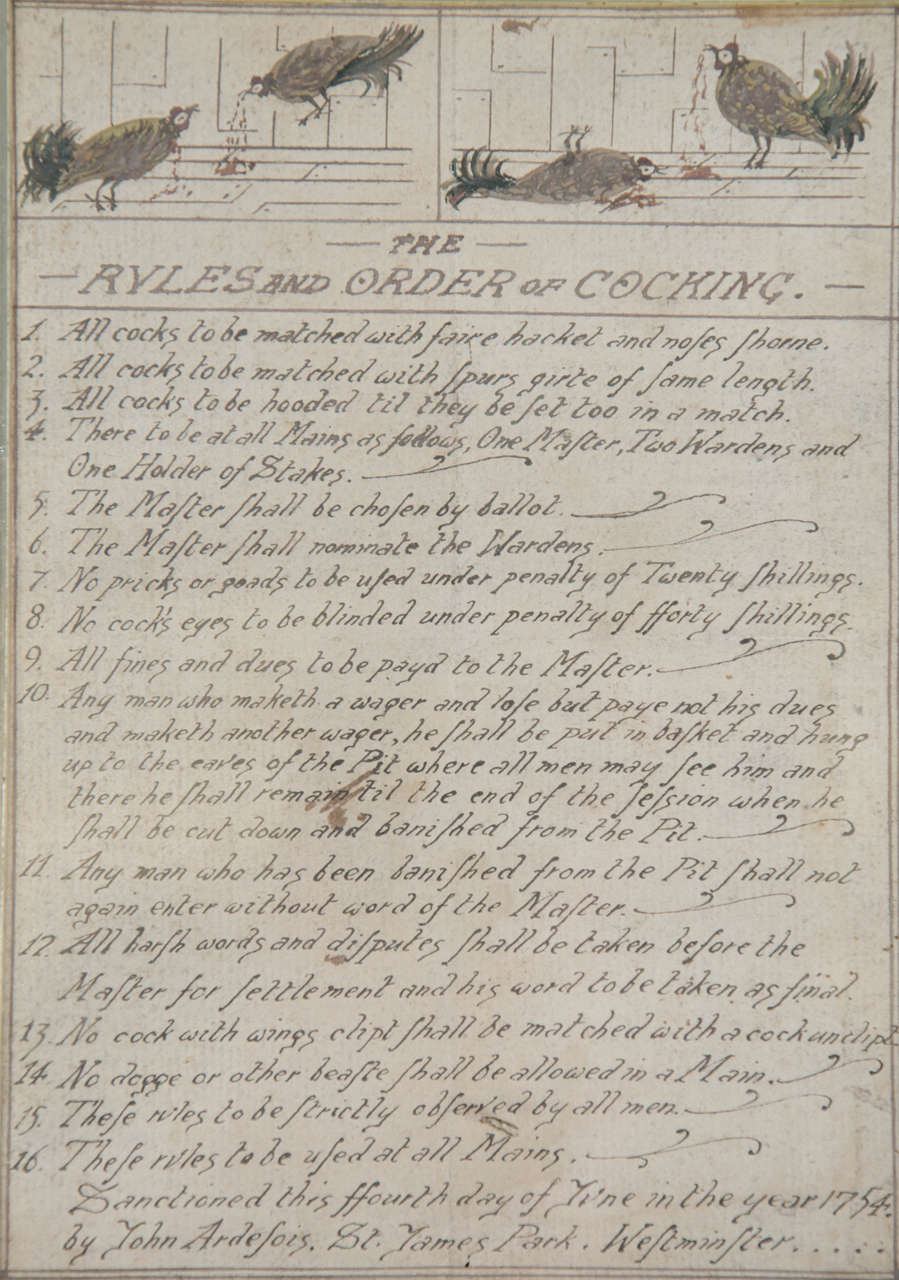 — THE —
— RVLES AND ORDER OF COCKING. —
1. All cocks to be matched with faire hacket and noſes ſhorne.
2. All cocks to be matched with ſpurs girte of ſame length.
3. All cocks to be hooded til they be ſet too in a match.
4. There to be at all Mains as follows, One Maſter, Two Wardens and
One Holder of Stakes.
5. The Maſter ſhall be choſen by ballot.
6. The Maſter ſhall nominate the Wardens.
7. No pricks or goads to be uſed under penalty of Twenty ſhillings.
8. No cock's eyes to be blinded under penalty of fforty ſhillings.
9. All fines and dues to be payd to the Maſter.
10. Any man who maketh a wager and loſe but paye not his dues
and maketh another wager, he ſhall be put in baſket and hung
up to the eaves of the Pit where all men may ſee him and
there he ſhall remain til the end of the ſeſsion when he
ſhall be cut down and baniſhed from the Pit.
11. Any man who has been baniſhed from the Pit ſhall not
again enter without word of the Maſter.
12. All harsh words and diſputes ſhall be taken before the
Maſter for ſettlement and his word to be taken as final.
13. No cock with wings clipt ſhall be matched with a cock unclipt
14. No dogge or other beaſte ſhall be allowed in a Main.
15. Theſe rvles to be ſtrictly obſerved by all men.
16. Theſe rvles to be uſed at all Mains.
Sanctioned this ffourth day of Jvne in the year 1754.
by John Ardeſois. St. James Park. Weſtminſter.....